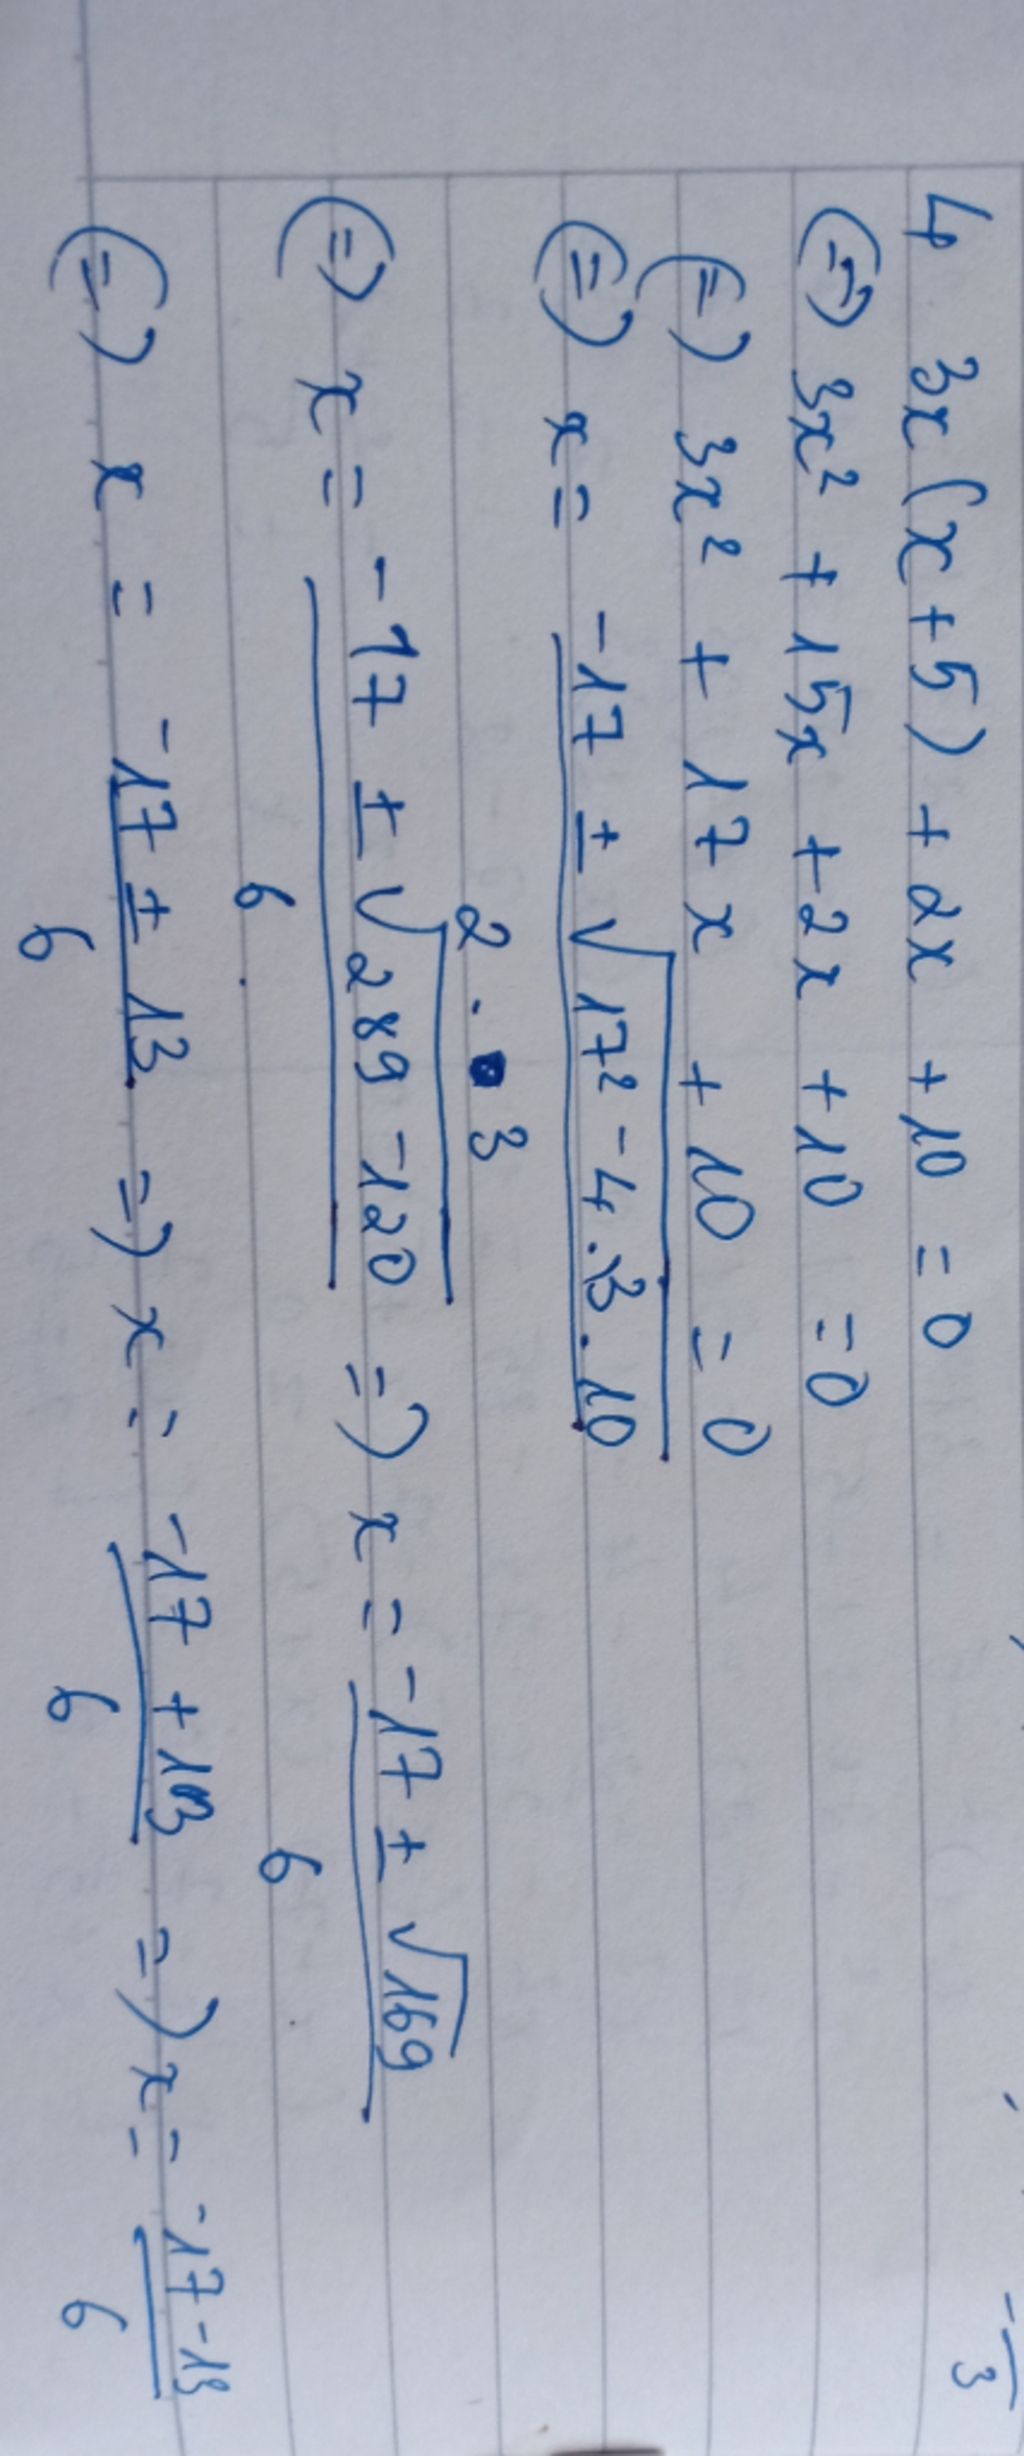 - 3
4 3x(x+5) + 2x + 10 = 0
(=) 3x² + 15x + 2x + 10 = 0
(=) 3x² + 17x + 10 = 0
(=) x = -17 ± √17² - 4.3.10
2 . 3
(=) x = -17 ± √289 - 120 =) x = -17 ± √169
6 6
(=) x = -17 ± 13 =) x = -17 + 13 =) x = -17 - 13
6 6 6